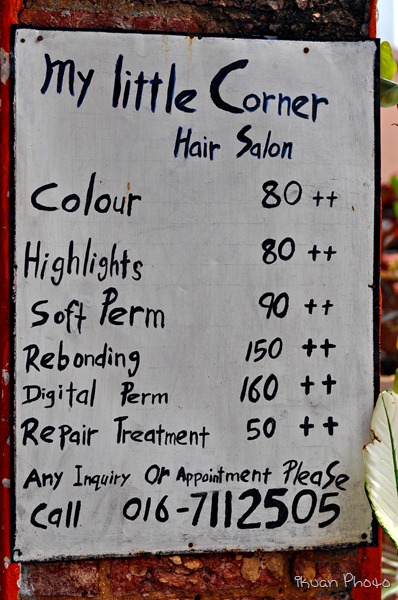 My little Corner
Hair Salon
Colour 80 ++
Highlights 80 ++
Soft Perm 90 ++
Rebonding 150 ++
Digital Perm 160 ++
Repair Treatment 50 ++
Any Inquiry Or Appointment Please
Call 016-7112505
ikuan Photo